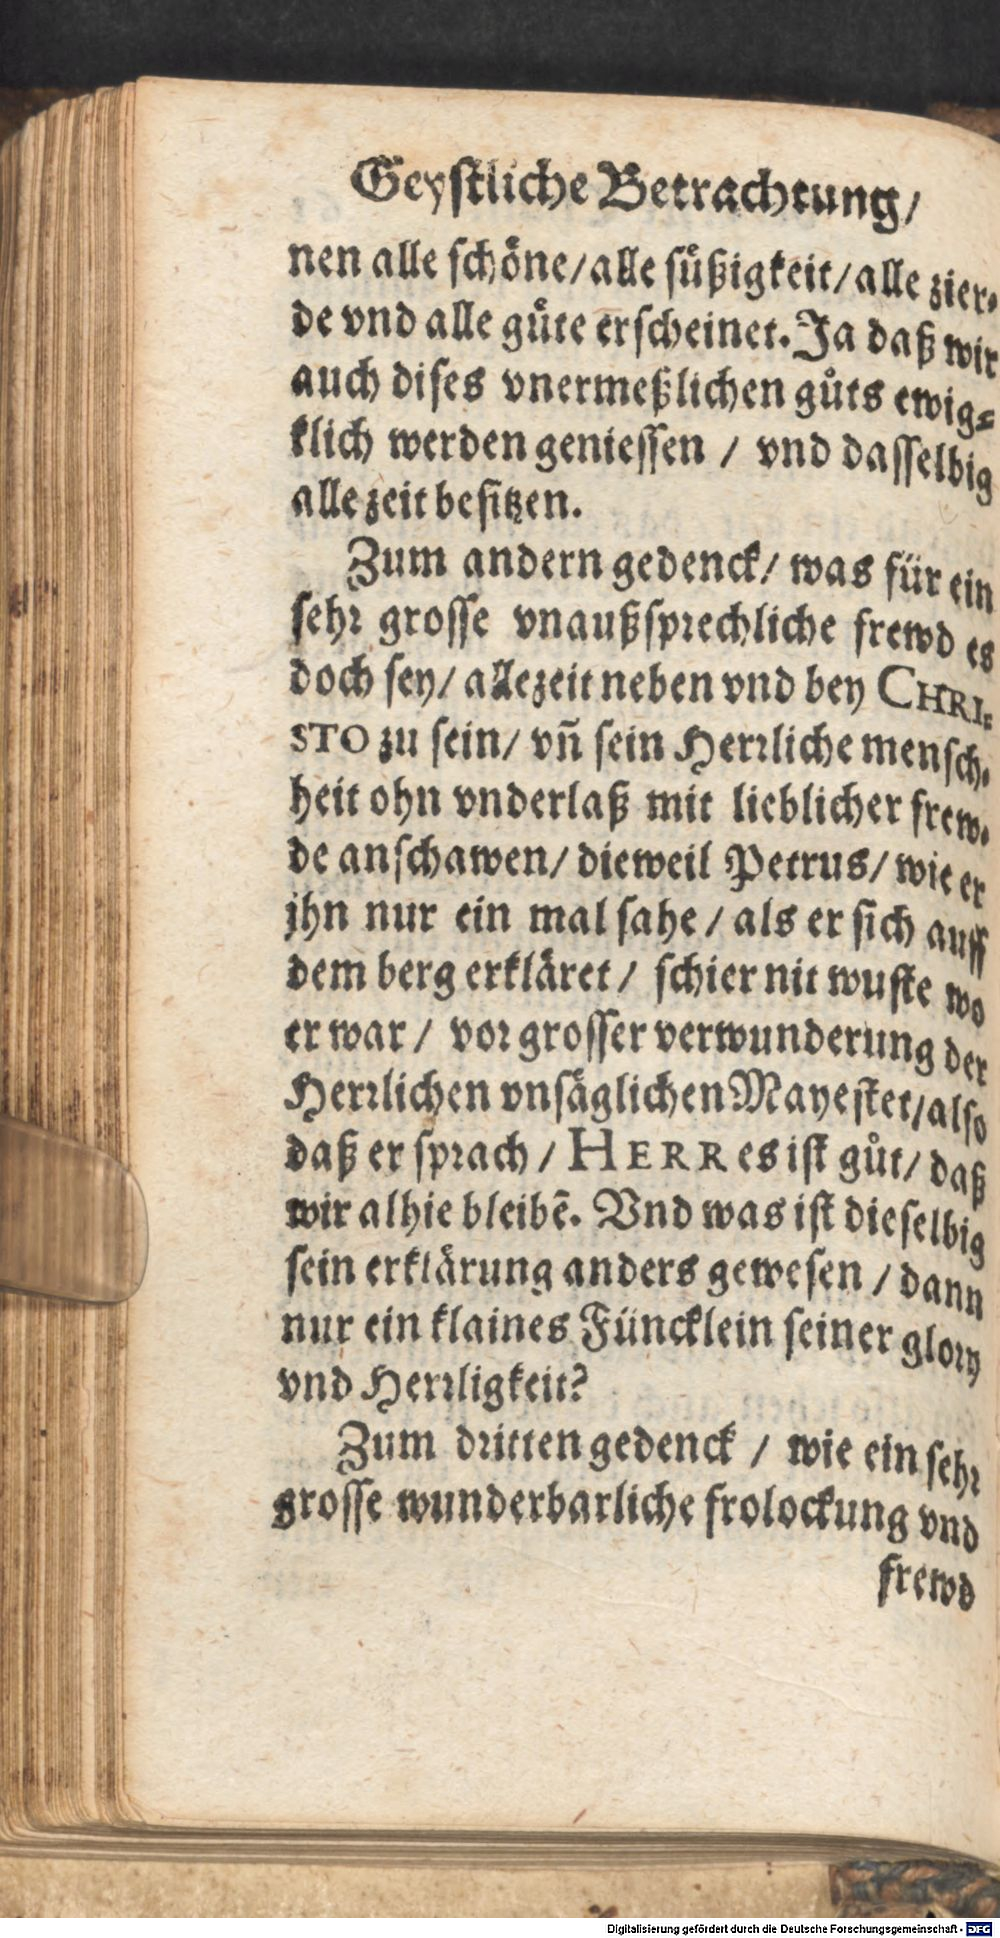 Geystliche Betrachtung/
nen alle schöne/alle süßigkeit/alle zier-
de vnd alle güte erscheinet. Ja daß wir
auch dises vnermeßlichen gůts ewig-
klich werden geniessen / vnd dasselbig
alle zeit besitzen.
Zum andern gedenck/ was für ein
sehr grosse vnaußsprechliche frewd es
doch sey/ allezeit neben vnd bey CHRI-
STO zu sein/ vñ sein Herrliche mensch-
heit ohn vnderlaß mit lieblicher frew-
de anschawen/ dieweil Petrus/ wie er
jhn nur ein mal sahe / als er sich auff
dem berg erkläret / schier nit wuste wo
er war / vor grosser verwunderung der
Herrlichen vnsäglichen Mayestet/also
daß er sprach / HERR es ist gůt/ daß
wir alhie bleibē. Vnd was ist dieselbig
sein erklärung anders gewesen / dann
nur ein klaines Füncklein seiner glory
vnd Herrligkeit?
Zum dritten gedenck / wie ein sehr
grosse wunderbarliche frolockung vnd
frewd
Digitalisierung gefördert durch die Deutsche Forschungsgemeinschaft - DFG